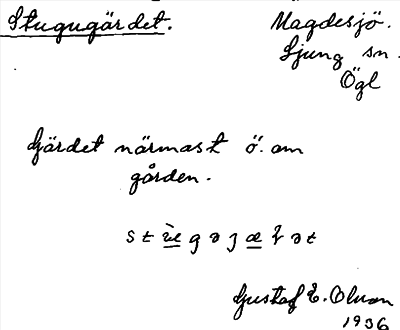 Stugugärdet. Magdesjö.
Ljung sn.
Ögl
Gärdet närmast ö. om
gården.
Gustaf E. Olson
1936